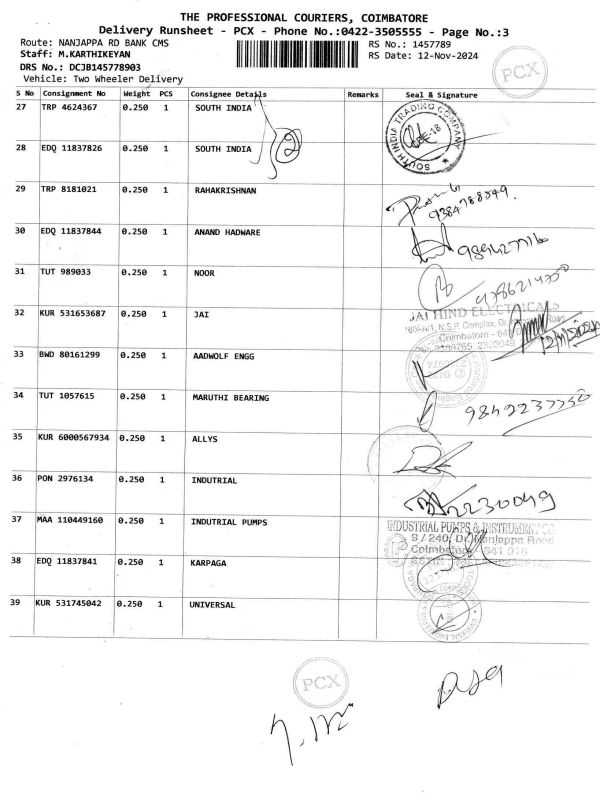 THE PROFESSIONAL COURIERS, COIMBATORE
Delivery Runsheet - PCX - Phone No.:0422-3505555 - Page No.:3
Route: NANJAPPA RD BANK CMS
Staff: M.KARTHIKEYAN
DRS No.: DCJB145778903
Vehicle: Two Wheeler Delivery
RS No.: 1457789
RS Date: 12-Nov-2024
PCX
S No Consignment No Weight PCS Consignee Details Remarks Seal & Signature
27 TRP 4624367 0.250 1 SOUTH INDIA
SOUTH INDIA TRADING COMPANY
CBE-18
2
28 EDQ 11837826 0.250 1 SOUTH INDIA
29 TRP 8181021 0.250 1 RAHAKRISHNAN
9384788849.
30 EDQ 11837844 0.250 1 ANAND HADWARE
31 TUT 989033 0.250 1 NOOR
9786214350
32 KUR 531653687 0.250 1 JAI
JAI HIND ELECTRICALS
N.S.P. Complex, Dr. Road
Coimbatore - 641
2303765 2303049
12/11/2024
33 BWD 80161299 0.250 1 AADWOLF ENGG
34 TUT 1057615 0.250 1 MARUTHI BEARING
9842237750
35 KUR 6000567934 0.250 1 ALLYS
36 PON 2976134 0.250 1 INDUTRIAL
2230049
37 MAA 110449160 0.250 1 INDUTRIAL PUMPS
INDUSTRIAL PUMPS & INSTRUMENT CO.
9 / 240, Dr. Nanjappa Road
Coimbatore - 641 018
38 EDQ 11837841 0.250 1 KARPAGA
39 KUR 531745042 0.250 1 UNIVERSAL
PCX